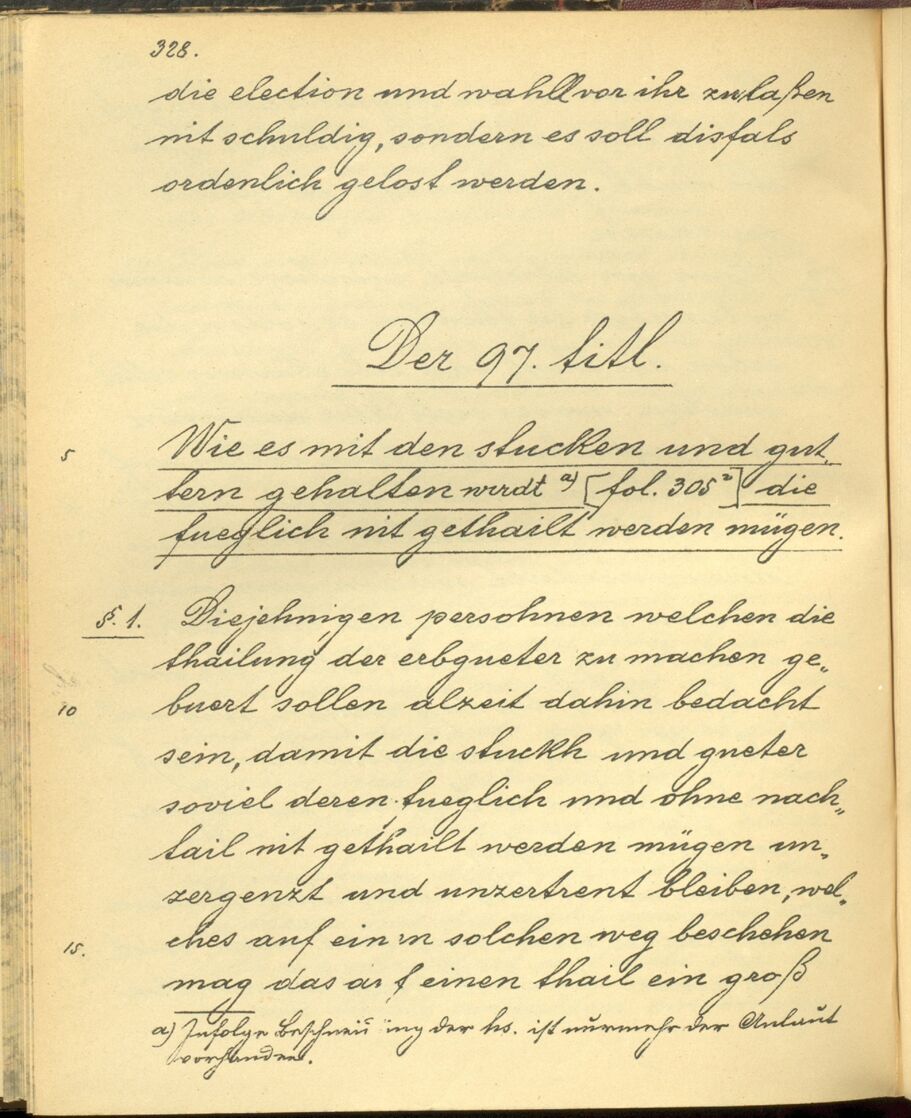 328.
die election und wahll vor ihr zu laßen
nit schuldig, sondern es soll disfals
ordenlich gelost werden.
Der 97. titl.
5 Wie es mit den stucken und güt„
tern gehalten wirdt a) [fol. 305²] die
fueglich nit gethailt werden mügen.
§. 1. Diejehnigen persohnen welchen die
thailung der erbgueter zu machen ge„
10 buert sollen alzeit dahin bedacht
sein, damit die stuckh und gueter
soviel deren fueglich und ohne nach„
tail nit gethailt werden mügen un„
zergenzt und unzertrent bleiben, wel„
15. ches auf einen solchen weg beschehen
mag das auf einen thail ein groß
a) Infolge Beschneidung der hs. ist nurmehr der Anlaut
vorhanden.